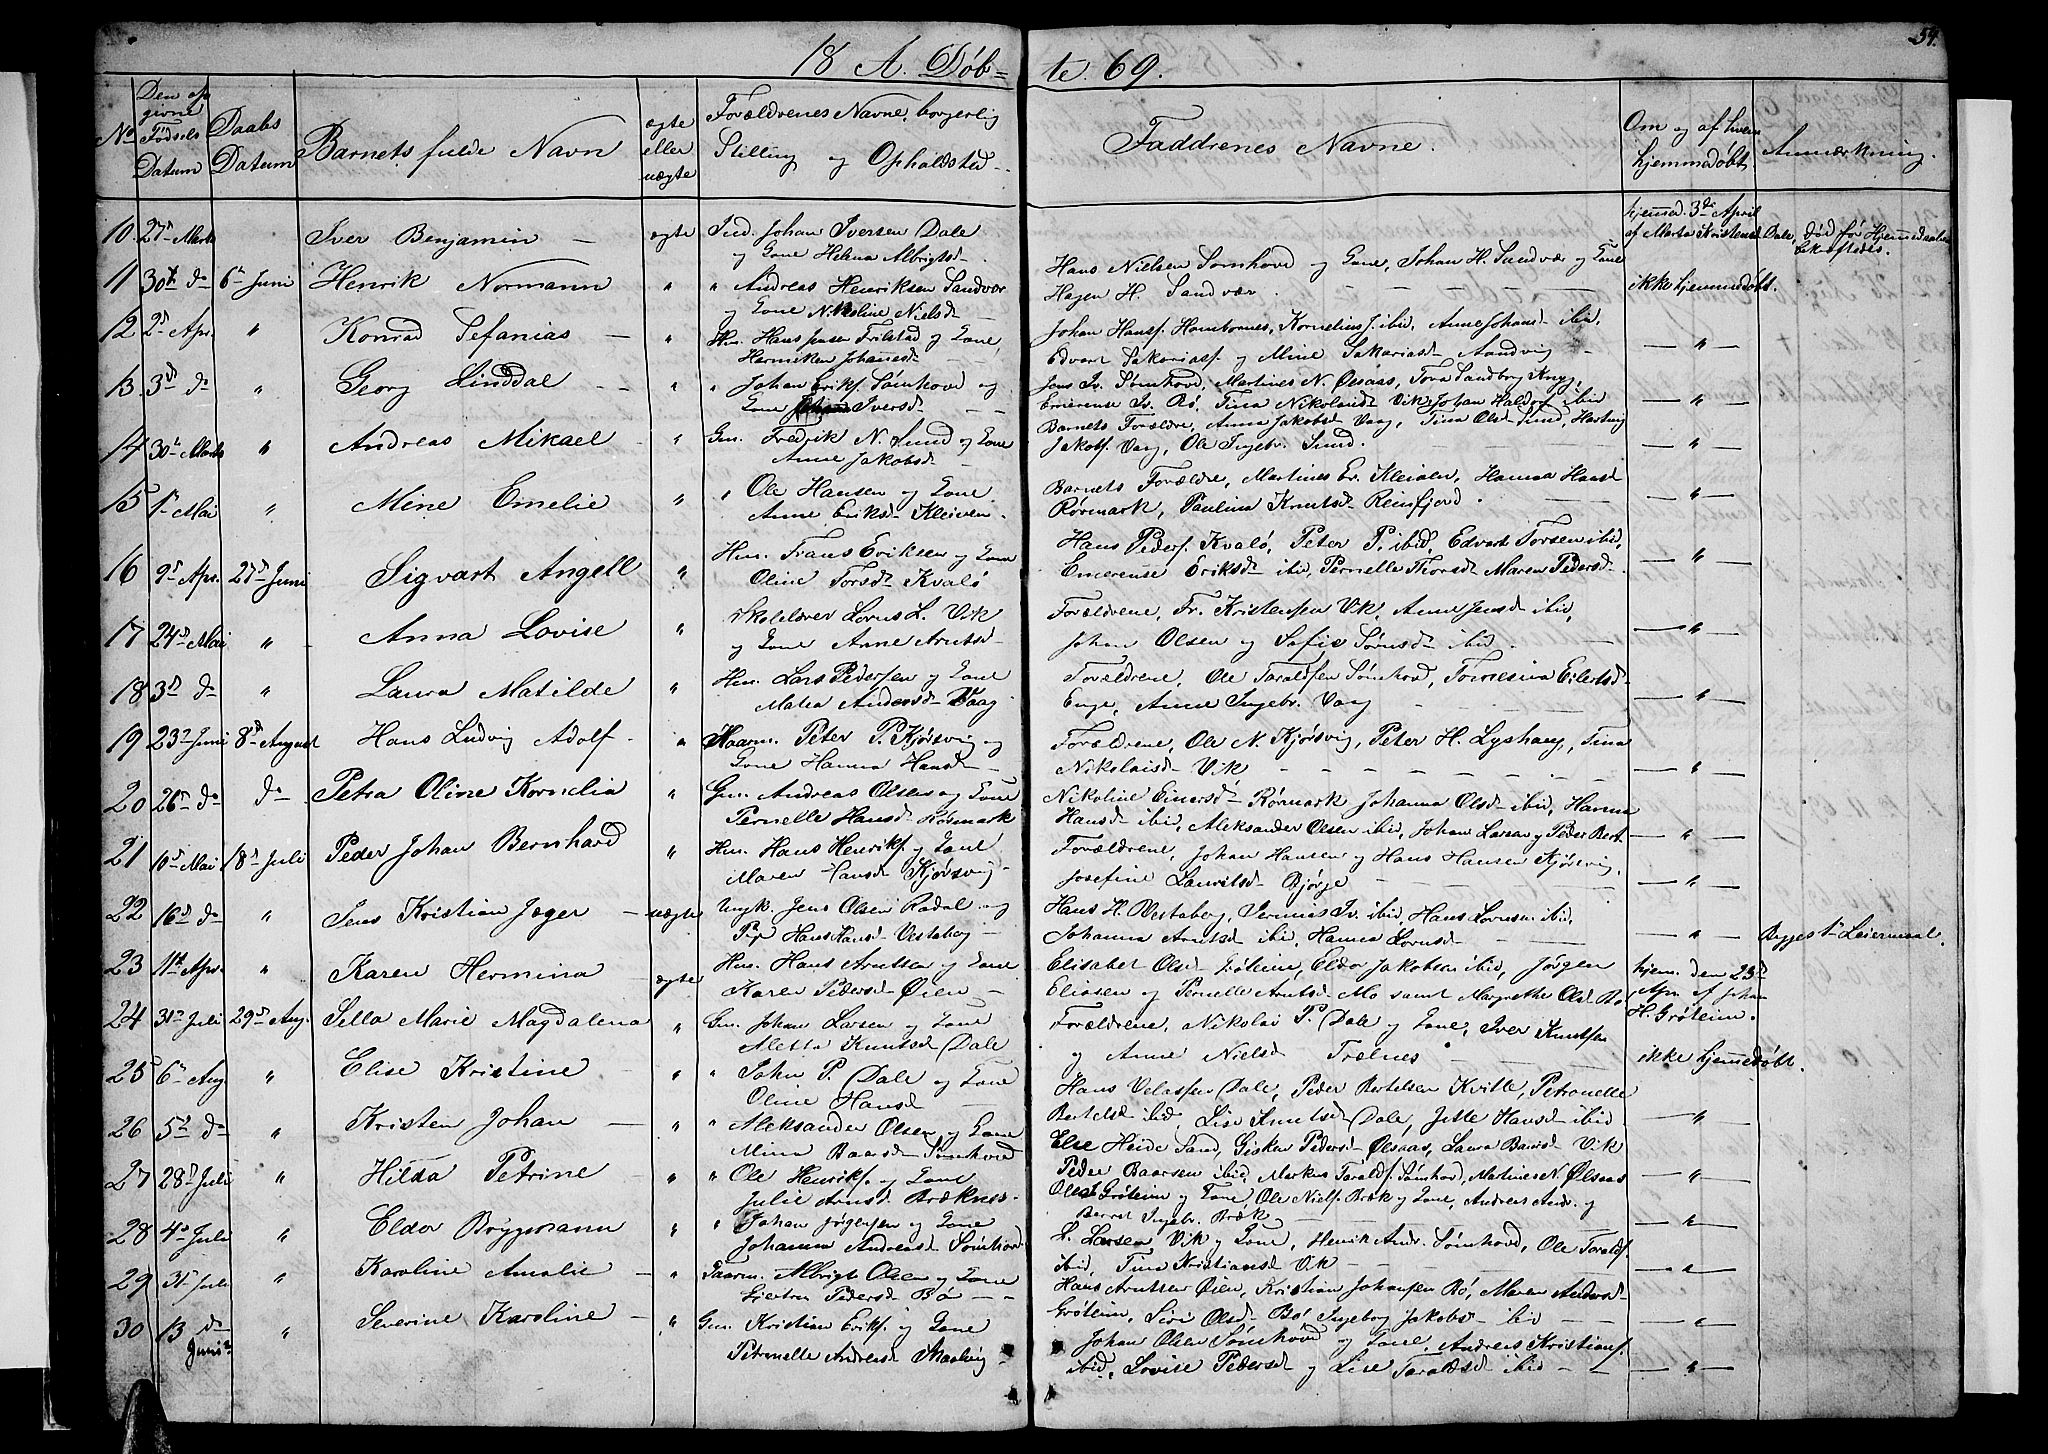 54.
18 A. Døb=
te. 69.
No
Den op
givne
Fødsels
Datum
Daabs
Datum
Barnets fulde Navn
ægte
eller
uægte
Forældrenes Navne, borgerlig
Stilling og Opholdsted
Faddrenes Navne.
Om og af hvem
hjemmedøbt.
Anmærkning.
10 27d Marts Iver Benjamin — ægte Ind. Johan Iversen Dale
og Kone Helena Albrigtsd.
hjemmed. 3die April
af Marta Kristensd Dale, død før Hjemmedaaben
bekræftedes.
11 30te do 6te Juni Henrik Normann " " Andreas Henriksen Sandvær
og Kone Nikoline Nielsd
Hans Nielsen Sømhovd og Kone, Johan H. Sandvær og Kone
Hagen H. Sandvær. ikke hjemmedøbt.
12 2d Apr. " Konrad Sefanias — " Hm. Hans Jensen Frilstad og Kone,
Hermiken Johansd
Johan Hansf. Horntornes, Kornelius J. ibid, Anne Johansd ibid,
Edvart Sakariasf. og Mine Sakariasd Aandvig — " —
13 3d do " Georg Linddal — " " Johan Erikf. Sømhovd og
Kone Iversd —
Jens Iv. Sømhovd, Martines N. Ølsaas, Tora Sandborg Knyg,
Emerense Iv. Bø, Tina Nikolaisd Vik, Johan Haldorf ibid — " —
14 30te Marts " Andreas Mikael — " Gm. Fredrik N. Sund og Kone
Anne Jakobsd
Barnets Forældre, Anna Jakobsd Vaag, Tina Olsd Sund, Hartvig
Jakobf. Vaag, Ole Ingebr. Sund. — " —
15 1te Mai " Mine Emelie " " Ole Hansen og Kone
Anne Eriksd Kleiven.
Barnets Forældre, Martines Er. Kleiven, Hanna Hansd
Rørmark, Paulina Knutsd Reinfjord. — " —
16 9d Apr. 27d Juni Sigvart Angell " Hm. Frans Eriksen og Kone
Oline Torsd Kvalø
Hans Pedersf. Kvalø, Peter P. ibid, Edvart Torsen ibid,
Emerense Eriksd ibid, Pernelle Thorsd Maren Pedersd — " —
17 24d Mai " Anna Lovise " Skolelærer Lorns L. Vik
og Kone Anne Arntsd
Forældrene, Fr. Kristensen Vik, Anne Jensd ibid,
Johan Olsen og Sofie Sørnsd ibid. — " —
18 3d do " Laura Matilde " Hm. Lars Pedersen og Kone
Matea Andersd Vaag
Forældrene, Ole Taraldsen Sømhovd, Tomesina Eilertsd
Enge, Anne Ingebr. Vaag — " —
19 23d Juni 8d August Hans Ludvig Adolf " Haarm. Peter P. Kjørsvig og
Kone Hanna Hansd
Forældrene, Ole N. Kjørsvig, Peter H. Lyshaug, Tina
Nikolaisd Vik — " —
20 26d do do Petra Oline Kornelia " Gm. Andreas Olsen og Kone
Pernelle Hansd Rørmark
Nikoline Einersd Rørmark Johanna Olsd ibid, Hanna
Hansd ibid, Aleksander Olsen ibid, Johan Larsen og Peder Bert. — " —
21 10d Mai 18d Juli Peder Johan Bernhard " Hm. Hans Henrikf. og Kone
Maren Hansd Kjørsvig
Forældrene, Johan Hansen og Hans Hansen Kjørsvig,
Josefine Lauritsd Bjørge — " —
22 16d do " Jens Kristian Jæger — uægte Ungk. Jens Olsen Rødal og
Pige Hans Hansd Vestabog —
Hans H. Vestabog, Jermias Iv. ibid, Hans Lornsen ibid,
Johanna Arntsd ibid, Hanna Lornsd — " — Begges 1te Leiermaal.
23 11te Apr. " Karen Hermina — ægte Hm. Hans Arntsen og Kone
Karen Pedersd Øien —
Elisabet Olsd Grøteim, Eldor Jakobsen ibid, Jørgen
Eliasen og Pernelle Arntsd Mo samt Margrethe Olsd Bø
hjem. den 23d
Apr. af Johan
H. Grøteim.
24 31d Juli 29d Aug. Sella Marie Magdalena " Gm. Johan Larsen og Kone
Aletta Knutsd Dale
Forældrene, Nikolai P. Dale og Kone, Iver Knutsen
og Anne Nielsd Trælnes ikke hjemmedøbt.
25 6te Aug. " Elise Kristine — " " John P. Dale og Kone
Oline Hansd
Hans Velassen Dale, Peder Bertelsen Kville, Petronelle
Bertelsd ibid, Lise Knutsd Dale, Jette Hansd ibid — " —
26 5te do " Kristen Johan — " " Aleksander Olsen og Kone
Mina Baarsd Sømhovd
Else Heide Sand, Gisken Pedersd Ølsaas, Laura Baarsd Vik
Peder Baarsen ibid, Markus Taraldf. Sømhovd, Martines N. Ølsaas — " —
27 28d Juli " Hilda Petrine " " Ole Henrikf. og Kone
Julie Arnsd Bræknes
Ole Grøteim og Kone, Ole Nielf. Bræk og Kone, Andreas And. og
Berret Ingebr. Bræk — " —
28 4de Juli " Eldor Bryggmann " " Johan Jørgensen og Kone
Johanna Andreasd Sømhovd
L. Larsen Vik og Kone, Henrik Andr. Sømhovd, Ole Taraldf.
ibid, Tina Kristiansd Vik — " —
29 31te Juli " Karoline Amalie — " Faarm. Albrigt Olsen og Kone
Gjertru Pedersd Bø — —
Hans Arntsen Øien, Kristian Johansen Bø, Maren Andersd
Grøteim, Siri Olsd Bø Ingebog Jakobsd ibid — " —
30 13 do
Juni " Severine Karoline — " Gm. Kristian Erikf. og Kone
Petronelle Andersd Maalvig —
Johan Olsen Sømhovd og Kone, Andreas Kristiansf.
ibid, Lovise Pedersd og Lise Taraldsd ibid — — " —